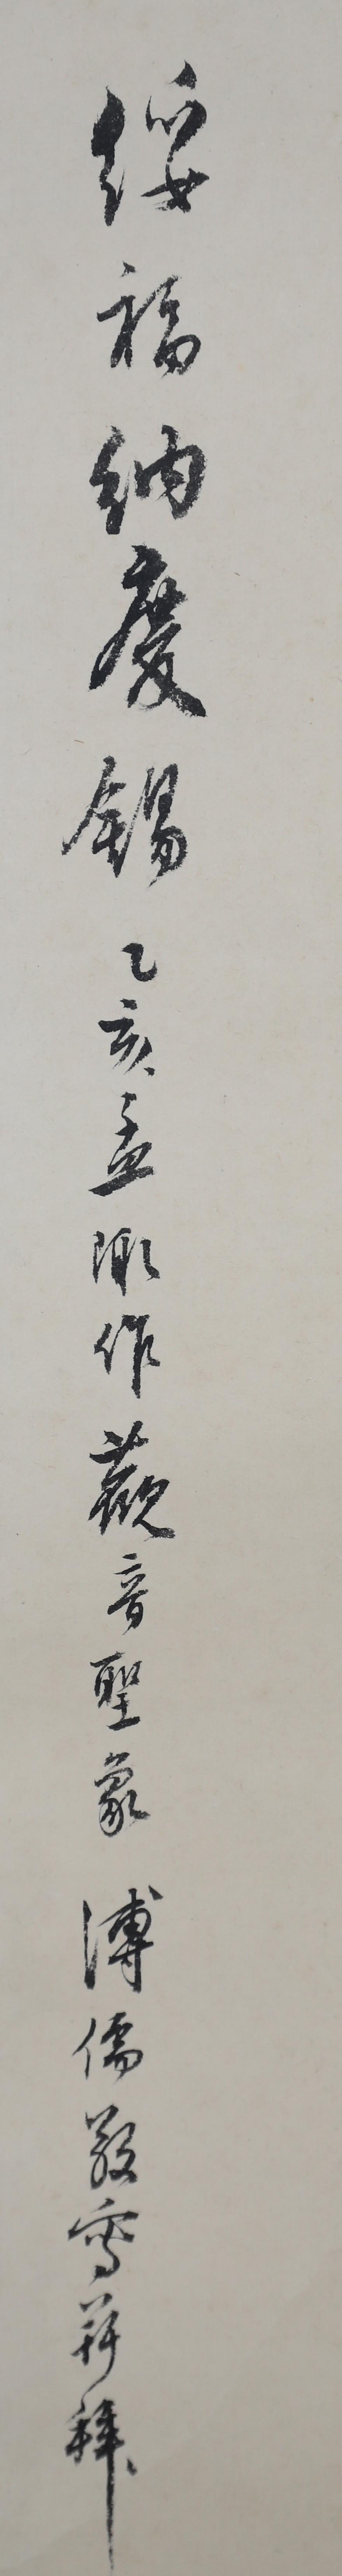 綏福納慶錫乙亥孟陬作觀音聖象溥儒敬寫並拜